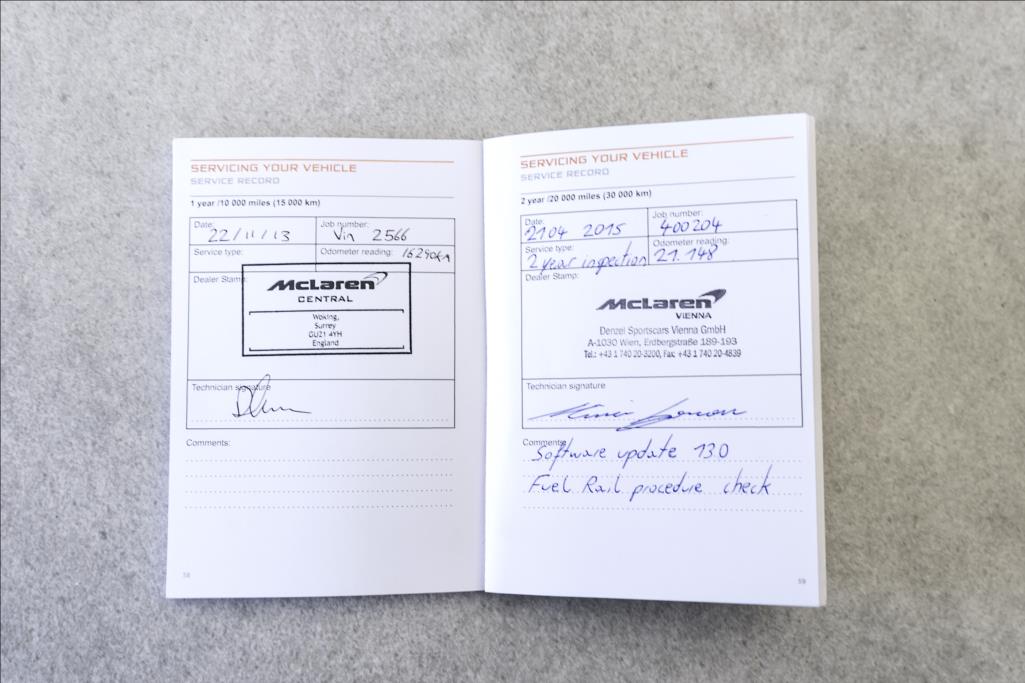 SERVICING YOUR VEHICLE
SERVICE RECORD
1 year /10 000 miles (15 000 km)
Date: 22/11/13
Job number: Vin 2566
Service type:
Odometer reading: 15290km
Dealer Stamp:
McLaren
CENTRAL
Woking,
Surrey
GU21 4YH
England
Technician signature
Comments:
58
SERVICING YOUR VEHICLE
SERVICE RECORD
2 year /20 000 miles (30 000 km)
Date: 2104 2015
Job number: 400204
Service type: 2 year inspection
Odometer reading: 21.148
Dealer Stamp:
McLaren
VIENNA
Denzel Sportscars Vienna GmbH
A-1030 Wien, Erdbergstraße 189-193
Tel.: +43 1 740 20-3200, Fax: +43 1 740 20-4839
Technician signature
Comments:
Software update 13.0
Fuel Rail procedure check
59